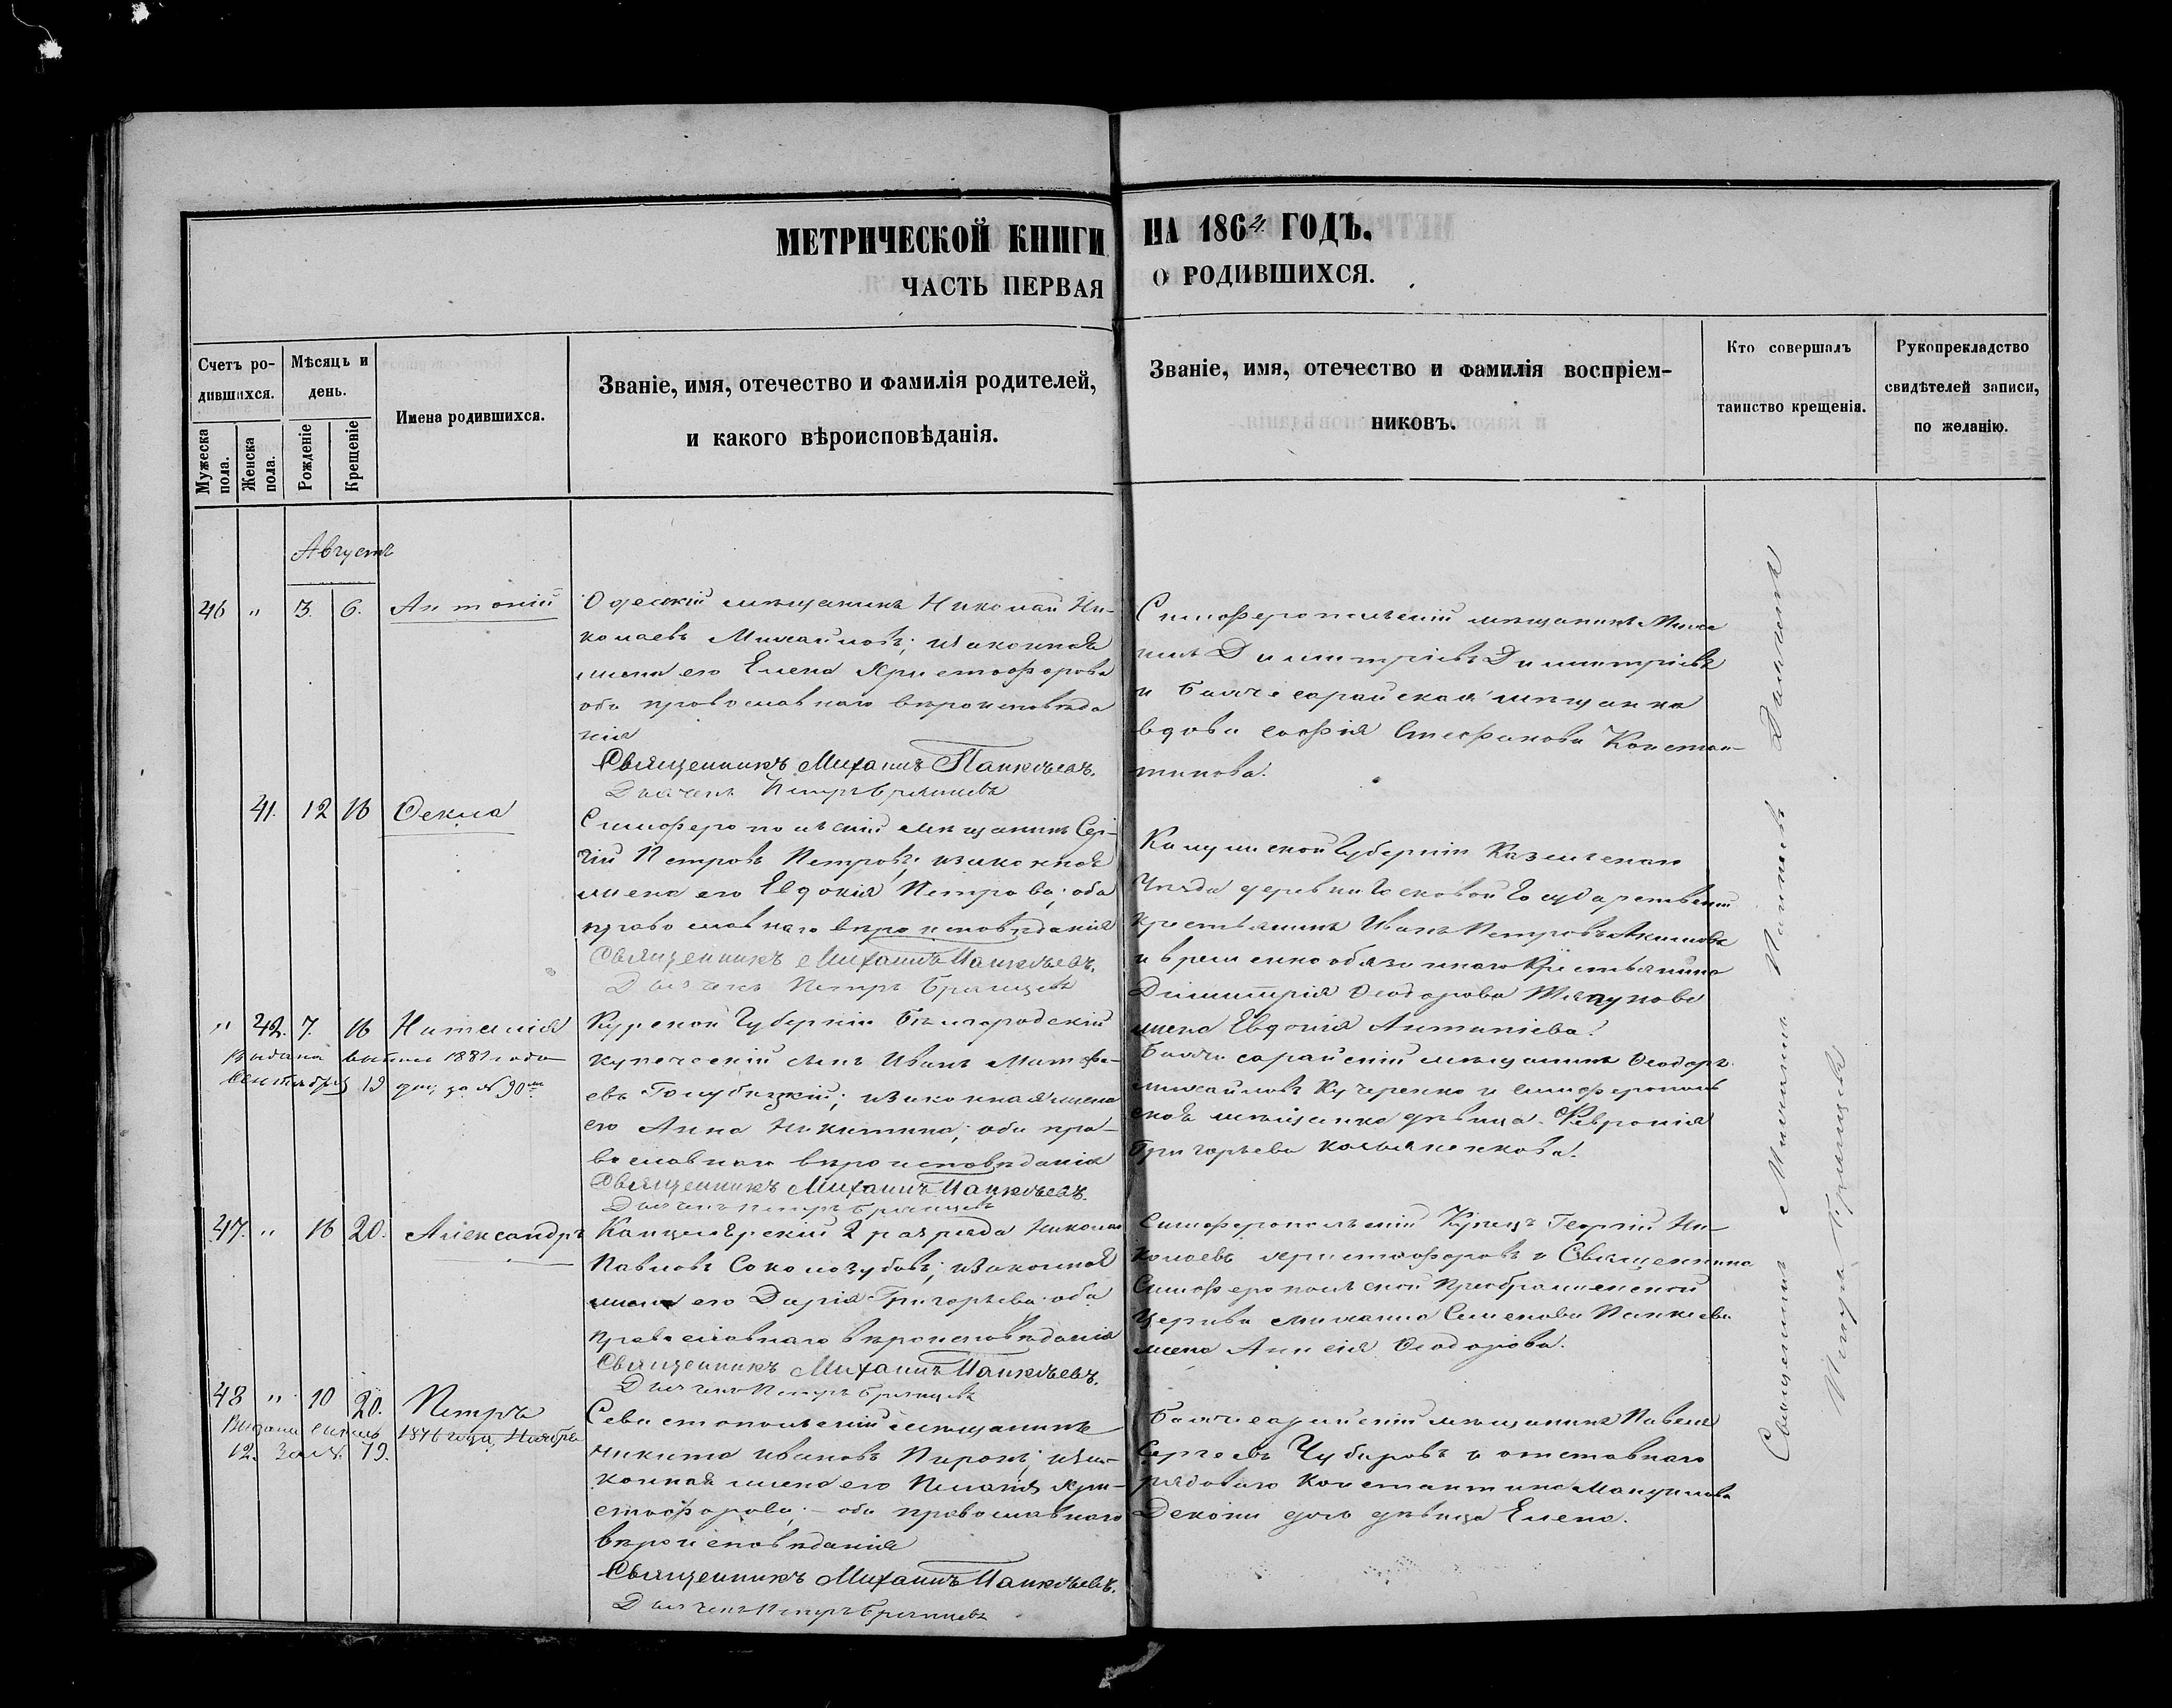 МЕТРИЧЕСКОЙ КНИГИ НА 1864. ГОДЪ.
ЧАСТЬ ПЕРВАЯ О РОДИВШИХСЯ.
Счетъ ро-
дившихся.
Мужеска пола.
Женска пола.
Мѣсяцъ и
день.
Рожденіе
Крещеніе
Имена родившихся.
Званіе, имя, отечество и фамилія родителей,
и какого вѣроисповѣданія.
Званіе, имя, отечество и фамилія воспріем-
никовъ.
Кто совершалъ
таинство крещенія.
Рукопрекладство
свидѣтелей записи,
по желанію.
Августъ
46 " 3. 6. Антоній
Одесскій мѣщанинъ Николай Ни-
колаевъ Михайловъ; и законная
жена его Елена Христофорова
оба православнаго вѣроисповѣда
нія
Священникъ Михаилъ Панкѣевъ.
Дьячекъ Петръ Брянцевъ
Симферопольскій мѣщанинъ Миха
илъ Димитріевъ Димитріевъ
и Бахчесарайская мѣщанка
вдова Софія Стефанова Констан-
тинова.
41. 12 16 Ѳекла
Симферопольскій мѣщанинъ Сер-
гій Петровъ Петровъ; и законная
жена его Евдокія Петрова; оба
православнаго вѣроисповѣданія
Священникъ Михаилъ Панкѣевъ.
Дьячекъ Петръ Брянцевъ
Калужской Губерніи Козельскаго
Уѣзда деревни Государственный
крестьянинъ Иванъ Петровъ Акимовъ
и временнообязаннаго Крестьянина
Димитрія Ѳеодорова
жена Евдокія Антипіева.
" 42. 7. 16 Наталія
Выдана выпись 1881 года
Сентября 19 дня, за № 90м
Курской Губерніи Бѣлгородскій
купеческій сынъ Иванъ Матѳѣ-
евъ Голубицкій; и законная жена
его Анна Никитина; оба пра-
вославнаго вѣроисповѣданія
Священникъ Михаилъ Панкѣевъ.
Дьячекъ Петръ Брянцевъ
Бахчисарайскій мѣщанинъ Ѳеодоръ
Михайловъ Кучеренко и Симферополь
ская мѣщанка дѣвица Февронія
Григорьева
47. " 16 20. Александръ
Канцелярскій 2 разряда Николай
Павловъ Соколозубовъ; и законная
жена его Дарія Григорьева оба
православнаго вѣроисповѣданія
Священникъ Михаилъ Панкѣевъ.
Дьячекъ Петръ Брянцевъ
Симферопольскій Купецъ Георгій Ни-
колаевъ Христофоровъ и Священника
Симферопольской Преображенской
Церкви Михаила Семенова Панкѣева
жена Анисія Ѳеодорова.
48 " 10 20. Петръ
Выдана выпись 1876 года, Ноября
12. За №. 79.
Севастопольскій мѣщанинъ
Никита Ивановъ Пиронъ; и за-
конная жена его Пелагія Хри-
стофорова; - оба православнаго
вѣроисповѣданія
Священникъ Михаилъ Панкѣевъ.
Дьячекъ Петръ Брянцевъ
Бахчисарайскій мѣщанинъ Павелъ
Сергѣевъ Чубаровъ и отставнаго
рядоваго Константина Мануилова
дочь дѣвица Елена.
Священникъ Михаилъ Панкѣевъ
Петръ Брянцевъ